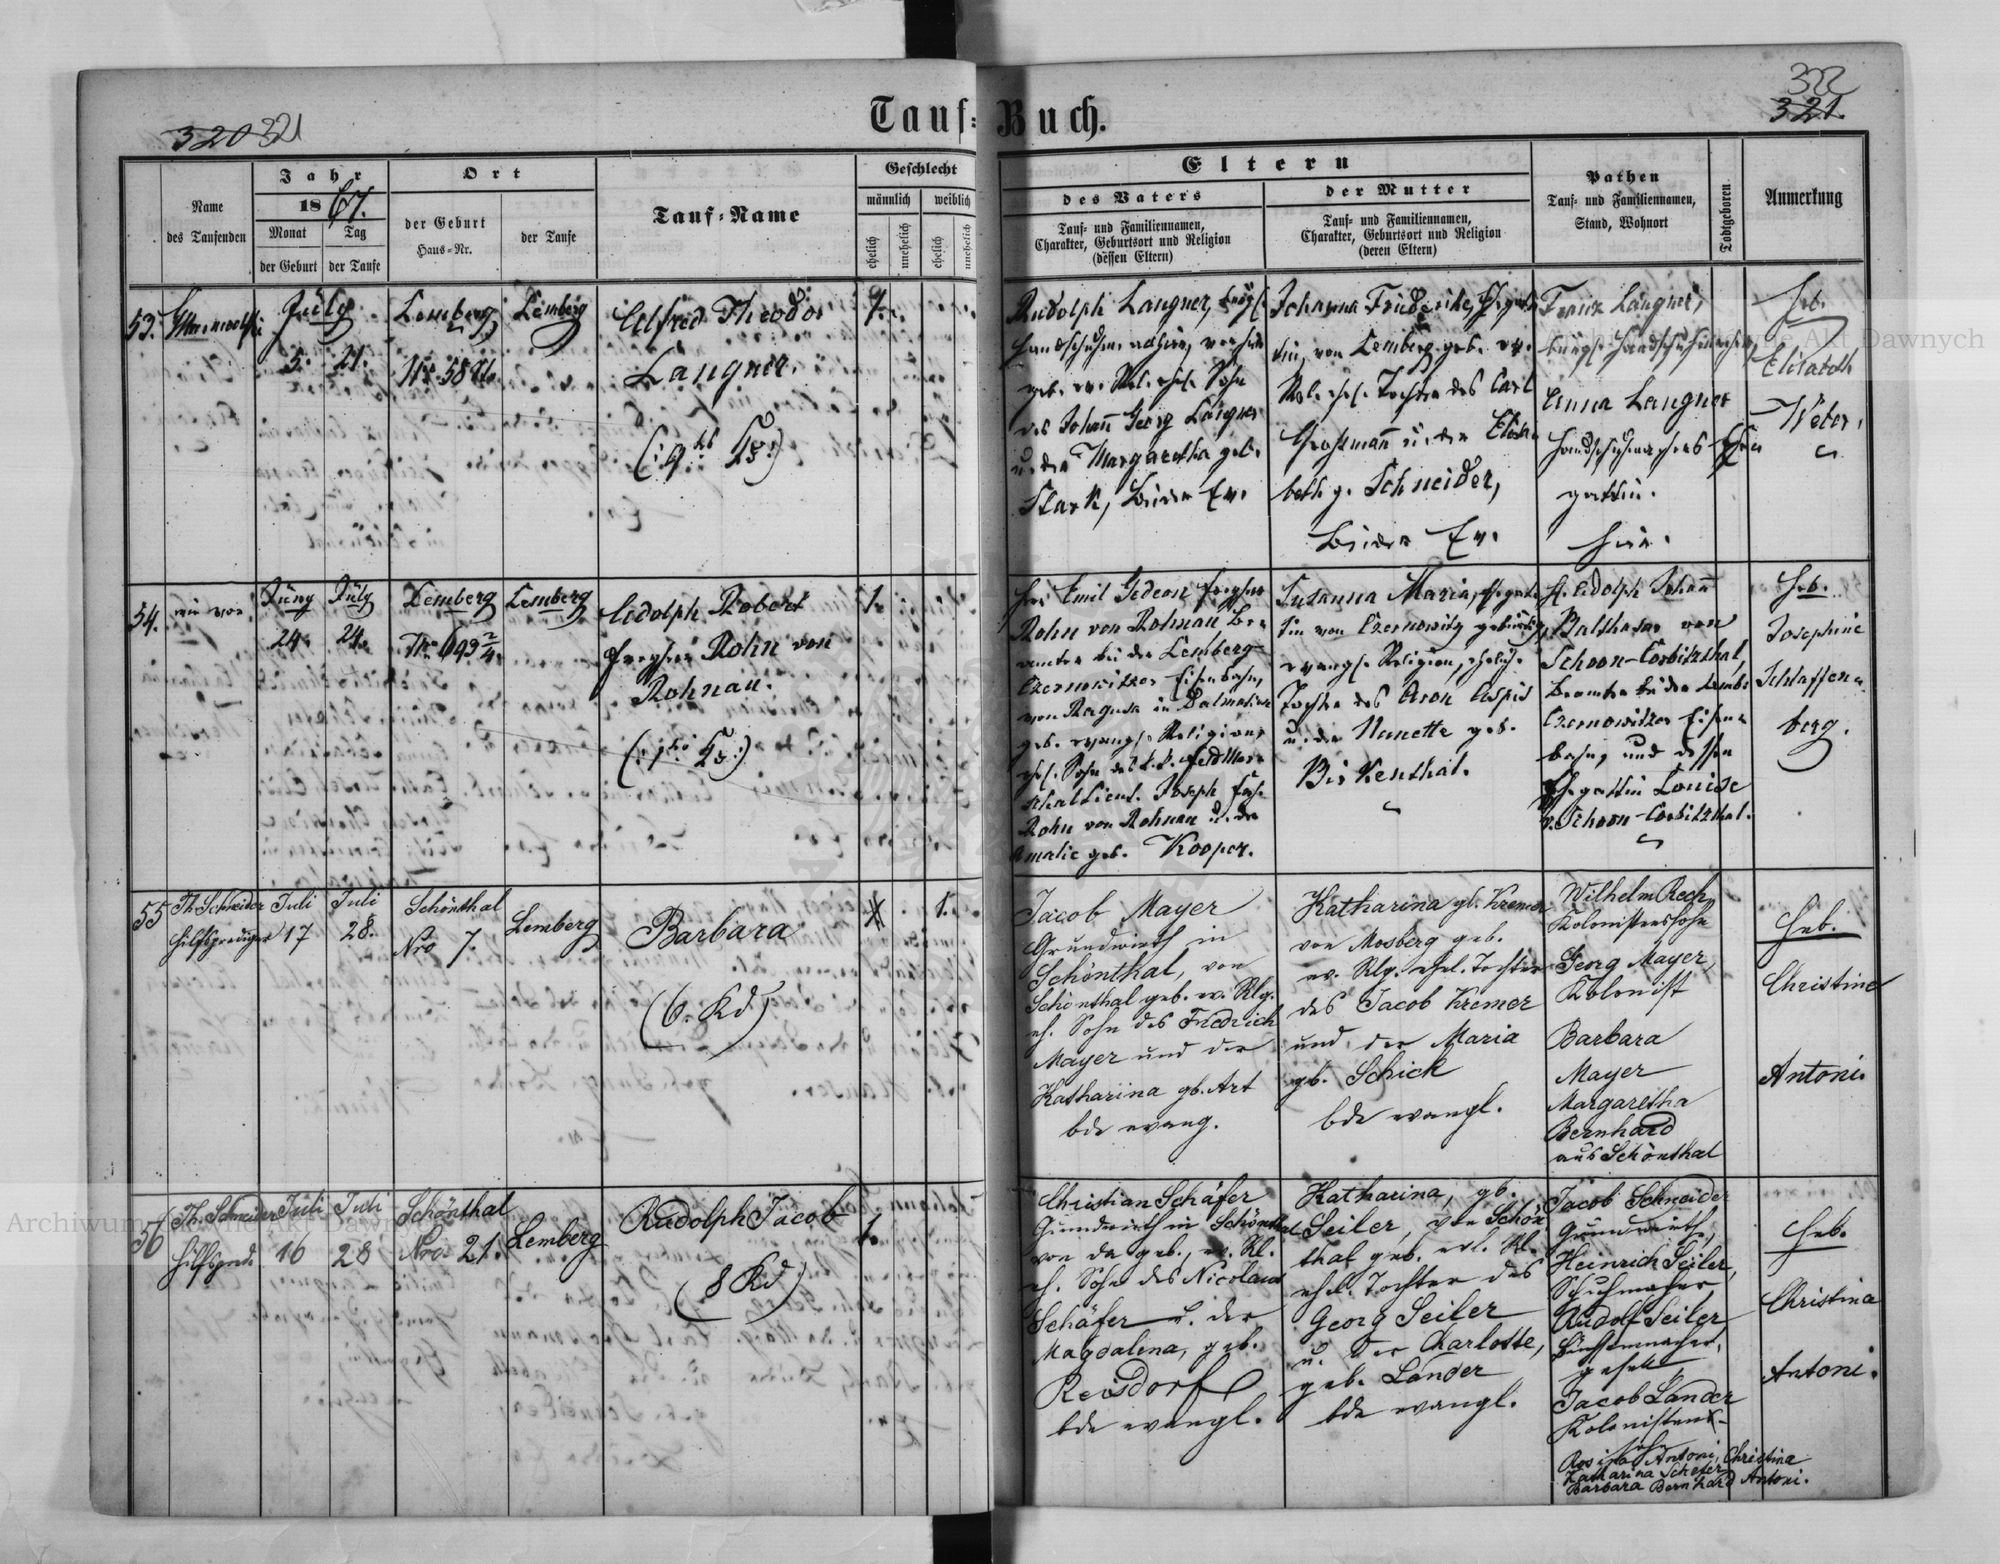 320 321
Tauf-Buch.
322
321.
Name
des Taufenden
Jahr
1867.
Monat
der Geburt
Tag
der Taufe
Ort
der Geburt
Haus-Nr.
der Taufe
Tauf-Name
Geschlecht
männlich
weiblich
ehelich
unehelich
ehelich
unehelich
Eltern
des Vaters
Tauf- und Familiennamen,
Charakter, Geburtsort und Religion
(dessen Eltern)
der Mutter
Tauf- und Familiennamen,
Charakter, Geburtsort und Religion
(deren Eltern)
Pathen
Tauf- und Familiennamen,
Stand, Wohnort
Todtgeboren
Anmerkung
53.
July
5. 21.
Lemberg
Lemberg
Alfred Theodor
Langner.
1.
Rudolph Langner,
geb. ev. Rel. ehel. Sohn
des Johann Georg Langner
u. der Margaretha geb.
Stark, beide Ev.
Johanna Friederike, Ehegat-
tin, von Lemberg geb. ev.
Rel. ehel. Tochter des Carl
Großmann u. der Elisa-
beth g. Schneider,
beide Ev.
Franz Langner,
Anna Langner
Handschuhmachers Ehe-
gattin.
hier.
Heb.
Elisabeth
Weber.
54.
wie vor.
Juny July
24. 24.
Lemberg
Nr. 693 2/4
Lemberg
Adolph Robert
Freyherr Rohn von
Rohnau.
1.
Herr Emil Gedeon Freyherr
Rohn von Rohnau Be-
amter bei der Lemberg-
Czernowitzer Eisenbahn,
von Ragusa in Dalmatien
geb. evangl. Religion,
ehel. Sohn des k.k. Feldmar-
schallLieut. Joseph Freih.
Rohn von Rohnau u. der
Amalie geb. Kooper.
Susanna Maria, Ehegat-
tin von Czernowitz gebürtig,
evangl. Religion, ehelich.
Tochter des Aron Aspis
u. der Nanette geb.
Birkenthal.
H. Adolph Johann
Balthasar von
Schoon-Corbitzthal,
Beamter bei der Lemb.
Czernowitzer Eisen-
bahn, und dessen
Ehegattin Louise
v. Schoon-Corbitzthal.
Heb.
Josephine
Schlaffen-
berg.
55
Th. Schneider
Hilfsprediger
Juli
17
Juli
28.
Schönthal
Nro 7.
Lemberg
Barbara
(6. Kd)
1.
Jacob Mayer
Grundwirth in
Schönthal, von
Schönthal geb. ev. Rlg.
eh. Sohn des Friedrich
Mayer und der
Katharina gb. Art
bde evang.
Katharina gb. Kremer
von Mosberg geb.
ev. Rlg. ehel. Tochter
des Jacob Kremer
und der Maria
gb. Schick
bde evangl.
Wilhelm Rech
Kolonistenssohn
Georg Mayer,
Kolonist
Barbara
Mayer
Margaretha
Bernhard
aus Schönthal
Heb.
Christine
Antoni.
56
Th. Schneider
Hilfspred.
Juli
16
Juli
28
Schönthal
Nro 21.
Lemberg
Rudolph Jacob
(8 Kd)
1.
Christian Schäfer
Grundwirth in Schönthal
von da geb., ev. Rl.
eh. Sohn des Nicolaus
Schäfer u. der
Magdalena, geb.
Reisdorf
bde evangl.
Katharina, gb.
Seiler, von Schön
thal geb. evl. Rl.
ehel. Tochter des
Georg Seiler
u. der Charlotte,
geb. Lander
bde evangl.
Jacob Schneider
Grundwirth,
Heinrich Seiler,
Schuhmacher
Rudolf Seiler
geselle
Jacob Lander
Kolonistens-
sohn
Rosina Antoni, Christina
Katharina Schefer
Barbara Bernhard Antoni.
Heb.
Christina
Antoni.
Archiwum Główne Akt Dawnych
Archiwum Główne Akt Dawnych